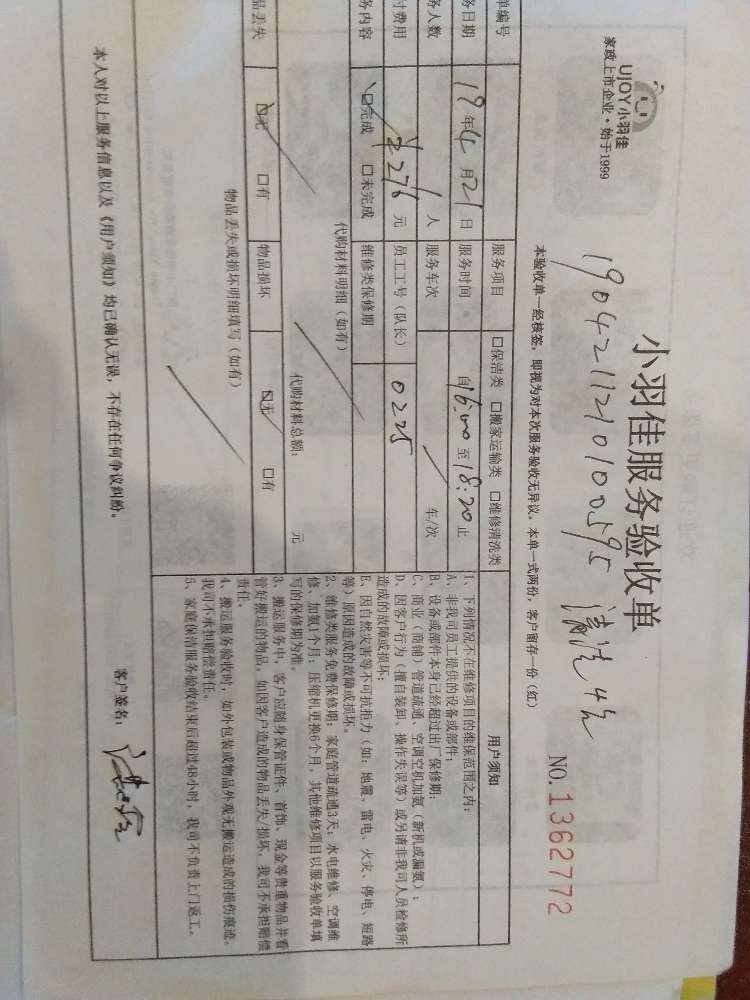 UJOY小羽佳
家政上市企业·始于1999
小羽佳服务验收单
1904211210100595 清洗
NO.1362772
本验收单一经核签，即视为对本次服务验收无异议。本单一式两份，客户留存一份（红）
单编号
服务项目 口保洁类 口搬家运输类 口维修清洗类
务日期 19年4月21日 服务时间 自16:00至18:20止
务人数 1人 服务车次 车/次
付费用 ¥276元 员工工号（队长） 0225
务内容 口完成 口未完成 维修类保修期
代购材料明细（如有）
代购材料总额： 元
品丢失 口无 口有 物品损坏 口无 口有
物品丢失或损坏明细填写（如有）
用户须知
1、下列情况不在维修项目的维保范围之内：
A、非我司员工提供的设备或部件；
B、设备或部件本身已经超过出厂保修期；
C、商业（商铺）管道疏通、空调空机加氨（新机或漏氨）；
D、因客户行为（擅自装卸、操作失误等）或另请非我司人员检修所
造成的故障或损坏；
E、因自然灾害等不可抗拒力（如：地震、雷电、火灾、停电、短路
等）原因造成的故障或损坏。
2、维修类服务免费保修期：家庭管道疏通3天；水电维修、空调维
修、加氨1个月；压缩机更换6个月，其他维修项目以服务验收单填
写的保修期为准。
3、搬运服务中，客户应随身保管证件、首饰、现金等贵重物品并看
管好搬运的物品，如因客户造成的物品丢失/损坏，我司不承担赔偿
责任。
4、搬运服务验收时，如外包装或物品外观无搬运造成的损伤痕迹，
我司不承担赔偿责任。
5、家庭保洁服务验收结束后超过48小时，我司不负责上门返工。
本人对以上服务信息以及《用户须知》均已确认无误，不存在任何争议纠纷。
客户签名：